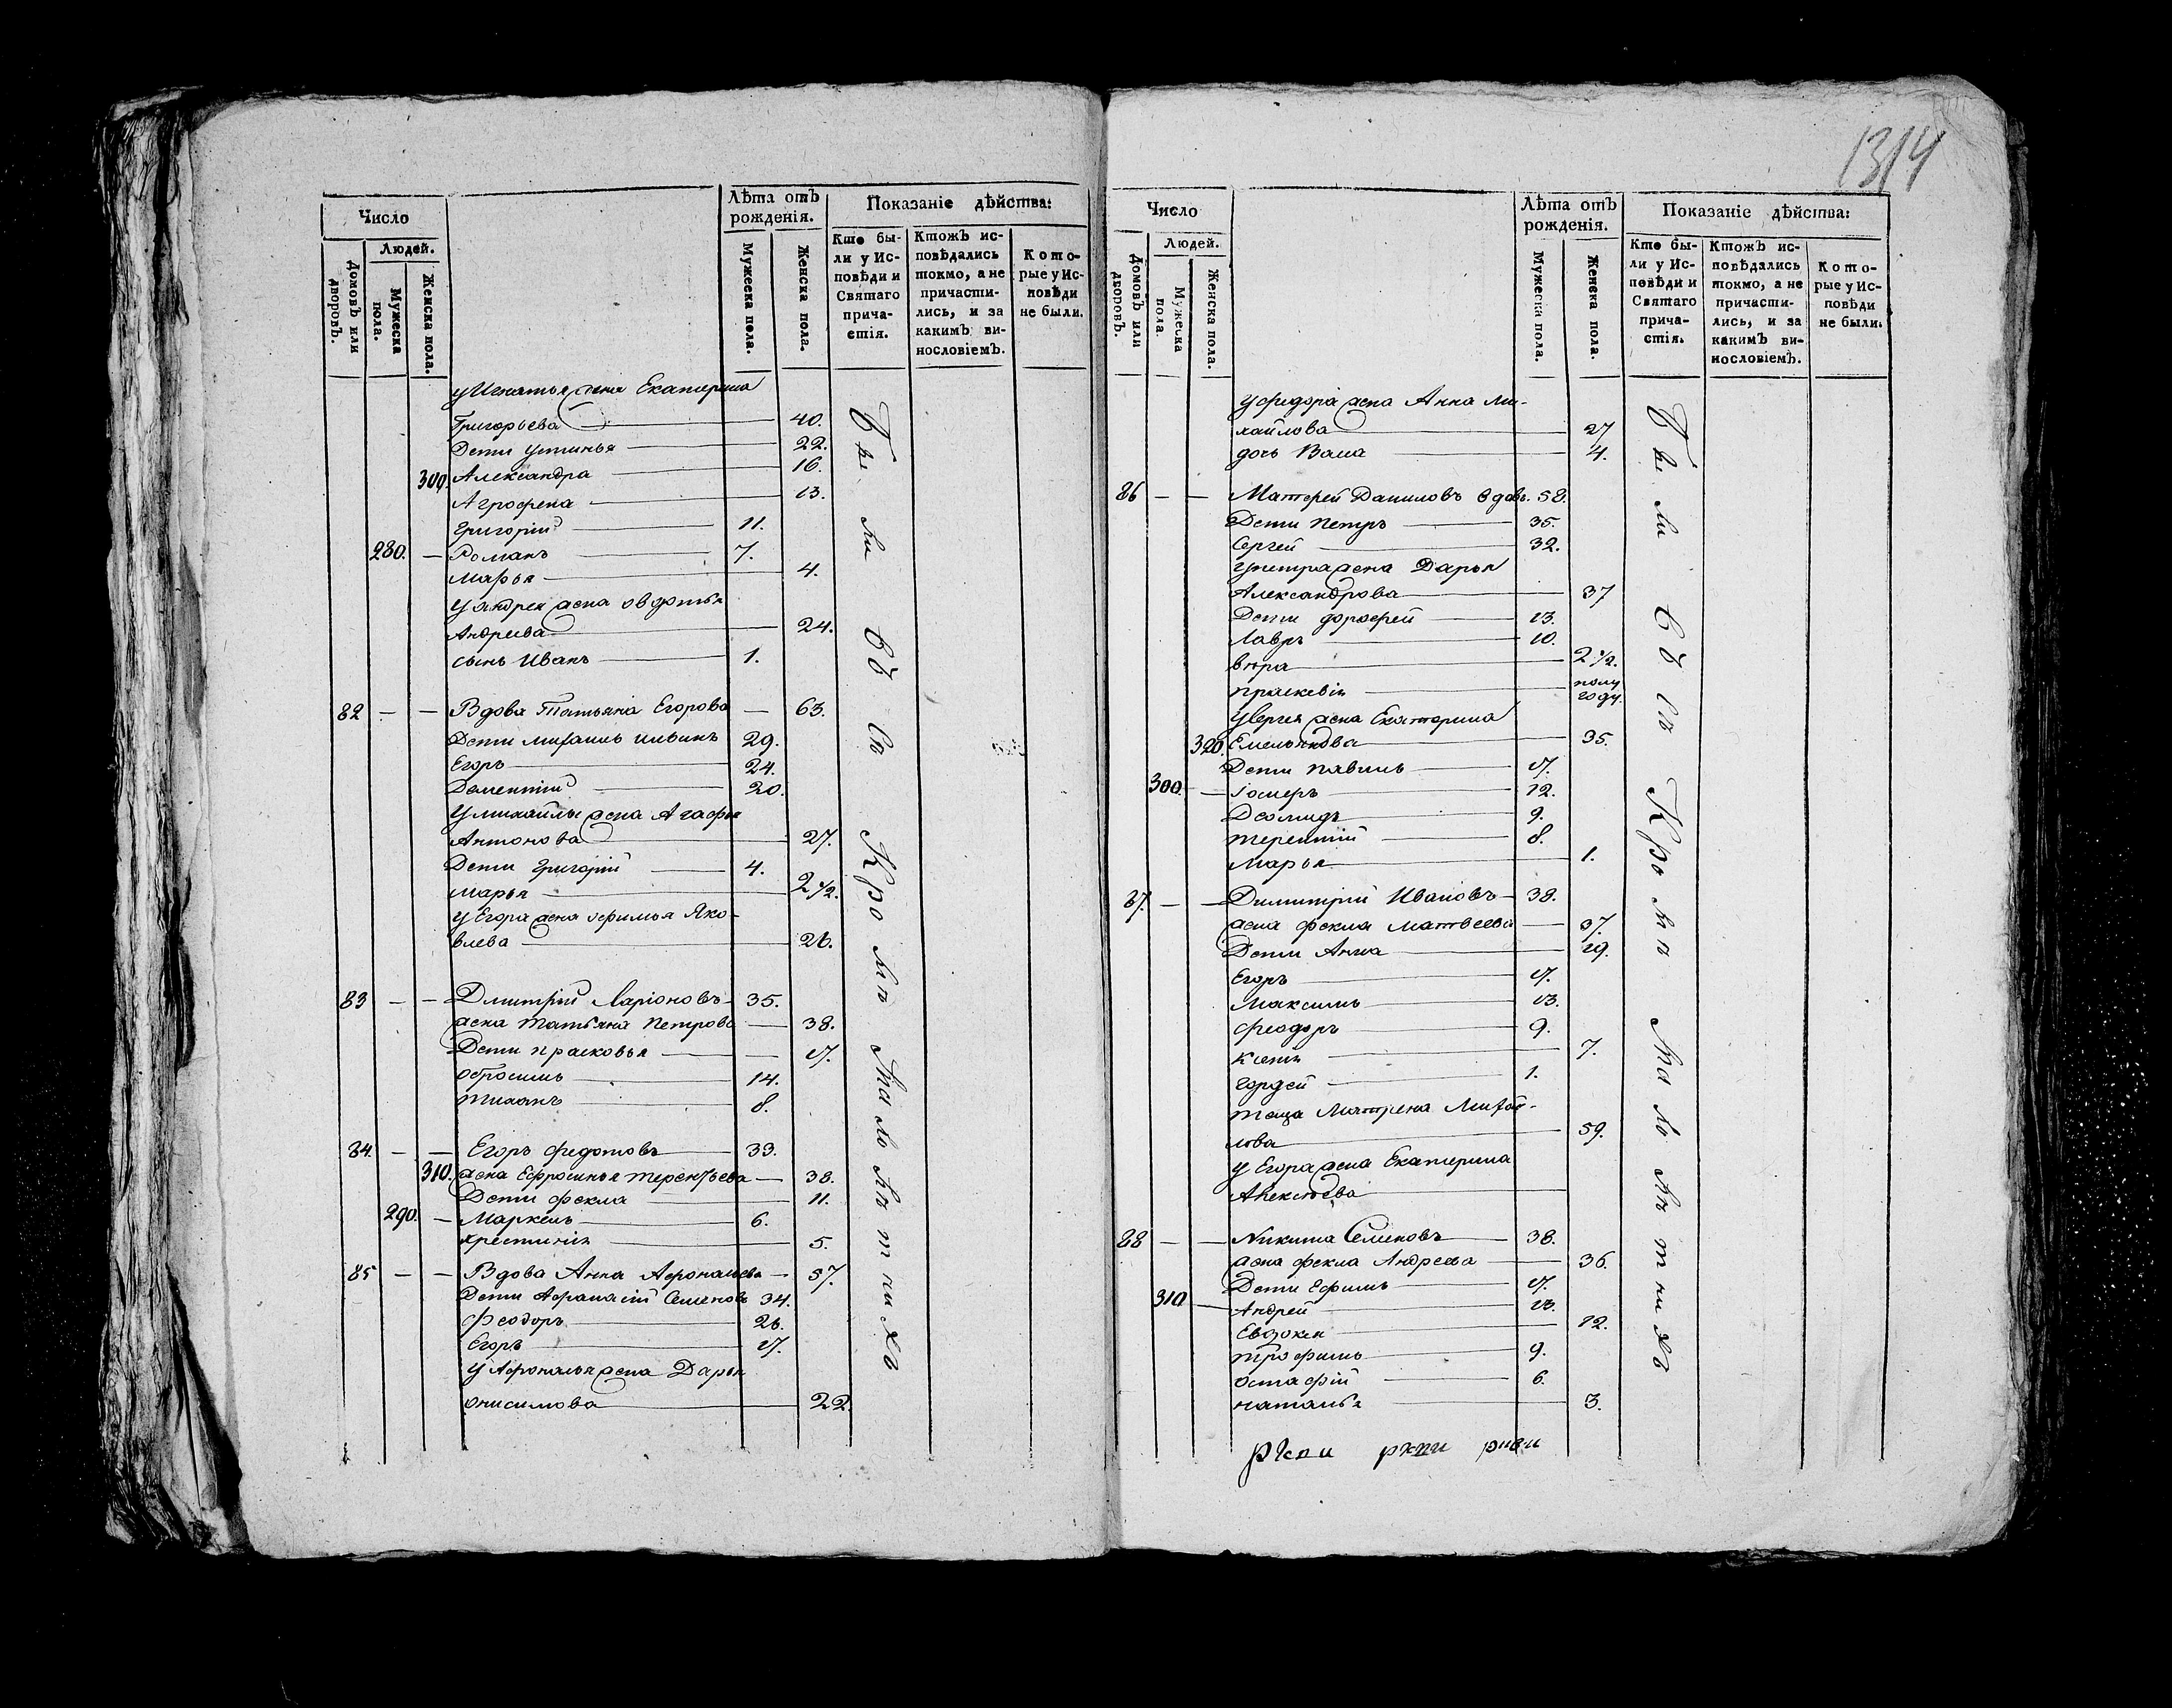 1314
Число
Лѣта отъ рожденія.
Показаніе дѣйства:
Людей.
Домовъ или дворовъ.
Мужеска пола.
Женска пола.
Мужеска пола.
Женска пола.
Кто бы-
ли у Ис-
повѣди и
Святаго
прича-
стія.
Ктожъ ис-
повѣдались
токмо, а не
причасти-
лись, и за
какимъ ви-
нословіемъ.
Кото-
рые у Ис-
повѣди
не были.
у Игнатья жена Екатерина
Григорьева 40.
Дети Устинья 22.
300. Александра 16.
Агрофена 13.
Григорій 11.
280. — Романъ 7.
Марья 4.
у андрея жена овдотья
Андреева 24.
сынъ Иванъ 1.
82 — — Вдова Татьяна Егорова — 63.
Дети Михаилъ Ильинъ 29.
Егоръ 24.
Доментій 20.
У михайлы жена Агафья
Антонова 27.
Дети Григорій 4.
Марья 2 1/2.
у Егора жена офимья Яко-
влева 26.
83 — — Дмитрій Ларіоновъ 35.
жена Татьяна Петрова 38.
Дети Прасковья 17.
Обросимъ 14.
Тихонъ 8.
84. — — Егоръ Федотовъ 33.
310. жена Ефросинья Терентьева — 38.
Дети Фекла 11.
290. — Маркелъ 6.
Хрестинія 5.
85 — — Вдова Анна Афонасьева — 57.
Дети Афанасій Семеновъ 34.
Феодоръ 26.
Егоръ 17.
У Афонасья жена Дарья
Онисимова 22.
Были въ с: Кромѣ Малолѣтнихъ
Число
Лѣта отъ рожденія.
Показаніе дѣйства:
Людей.
Домовъ или дворовъ.
Мужеска пола.
Женска пола.
Мужеска пола.
Женска пола.
Кто бы-
ли у Ис-
повѣди и
Святаго
прича-
стія.
Ктожъ ис-
повѣдались
токмо, а не
причасти-
лись, и за
какимъ ви-
нословіемъ.
Кото-
рые у Ис-
повѣди
не были.
у федора жена Анна Ми-
хайлова 27
дочь Васа 4.
86 — — Матфей Даниловъ вдовъ. 58.
Дети Петръ 35.
Сергей 32.
у петра жена Дарья
Александрова 37
Дети дорофей 13.
Лавръ 10.
Вѣра 2 1/2.
Праскевія полу году.
У Сергея жена Екатерина
320. Емельянова 35.
Дети Павелъ 17.
300. — 12.
Деомидъ 9.
Терентій 8.
Марья 1.
87. — — Димитрій Ивановъ 38.
жена Фекла Матвеева 37.
Дети Анна 19.
Егоръ 17.
Максимъ 13.
Феодоръ 9.
7.
Гордей 1.
Теща Матрена Михай-
лова 59.
у Егора жена Екатерина
Алексѣева
88 — — Никита Семеновъ 38.
жена Фекла Андреева 36.
Дети Ефимъ 17.
310 — Андрей 13.
Евдокея 12.
Трофимъ 9.
Остафій 6.
Наталья 3.
Были въ с: Кромѣ Малолѣтнихъ